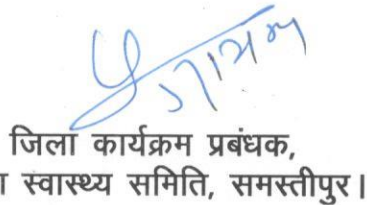 जिला कार्यक्रम प्रबंधक,
स्वास्थ्य समिति, समस्तीपुर।